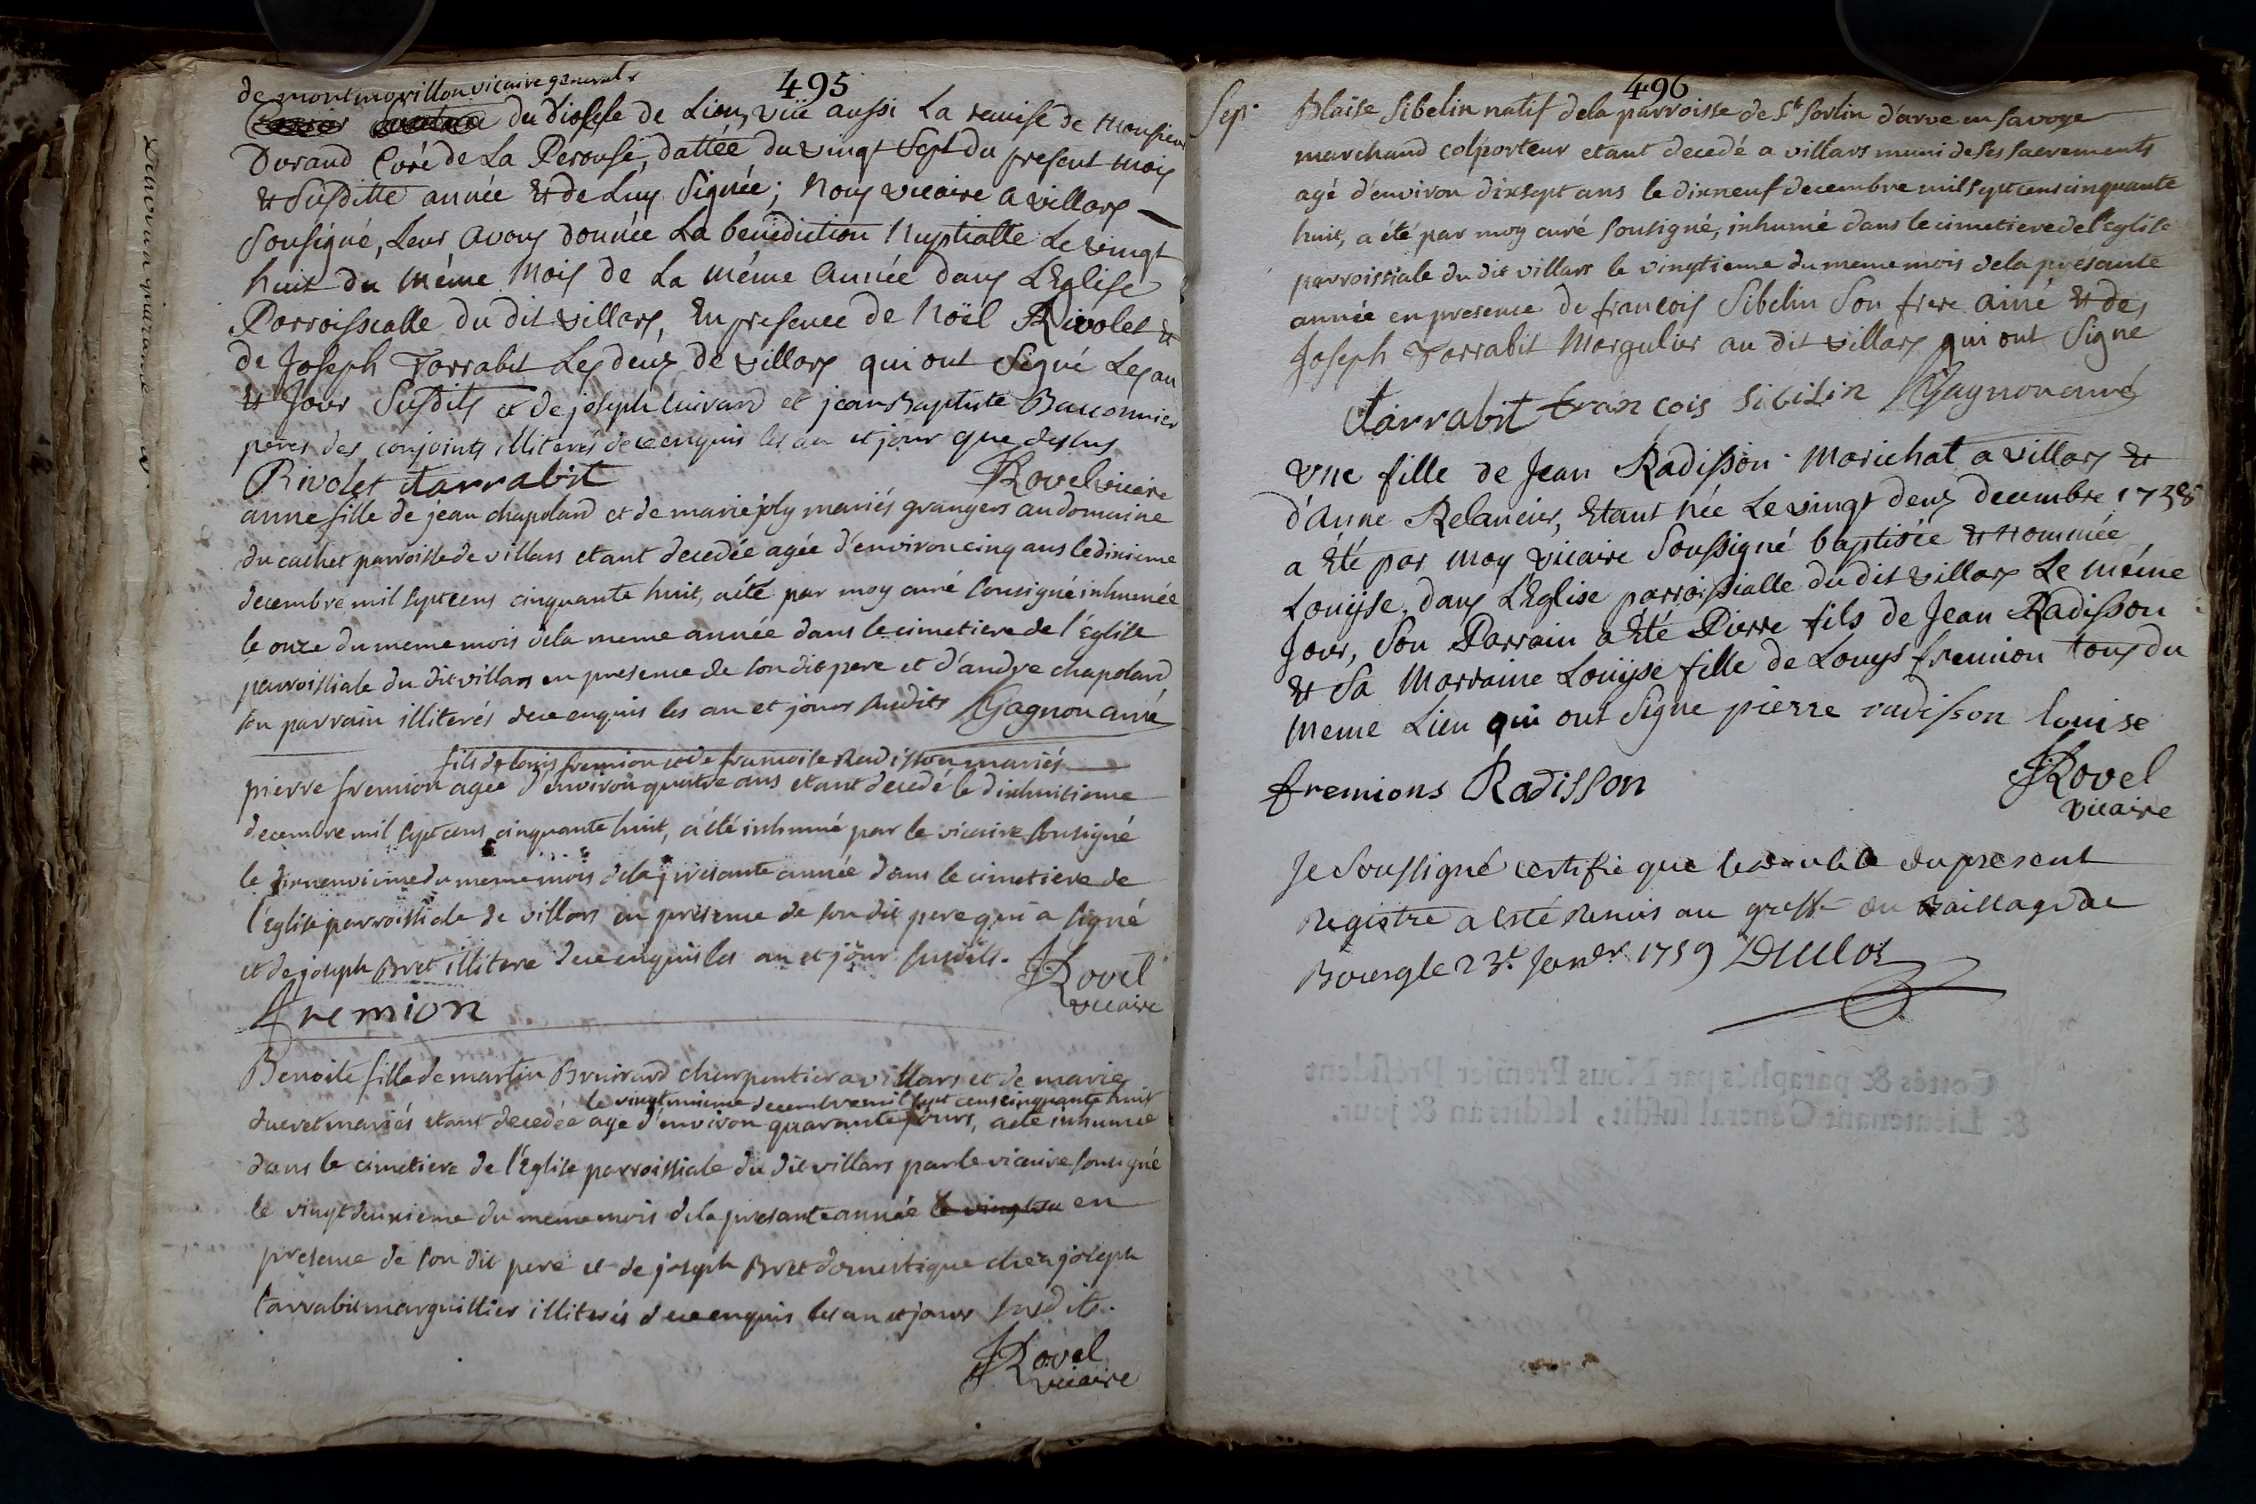 495
de montmorillon vicaire general
du diocese de Lion, vüe aussi La remise de Monsieur
Durand Curé de La Perouse, dattée du vingt Sept du present mois
& Susditte année & de Luy Signée; Nous vicaire a villars
Sousigné, Leur avons donnée La benediction Nuptialle Le vingt
huit du même Mois de La même Année dans L'Eglise
Parroissialle du dit villars, En presence de Noël Rivolet &
de Joseph Tarrabit Les deux de villars qui ont Signé Les an
& Jour Susdits et de joseph Guivard et jean Baptiste Bauconnier
peres des conjoints illiterés de ce enquis les an et jour que dessus
Rivolet tarrabit Rovel vicaire
anne fille de jean chapoland et de marie joly mariés grangers au domaine
du cachet parroisse de villars etant decedée agée d'environ cinq ans le dixieme
decembre mil sept cens cinquante huit, a été par moy curé sousigné inhumée
le onze du meme mois de la meme année dans le cimetiere de l'Eglise
parroissiale du dit villars en presence de son dit pere et d'andre chapoland
son parrain illiterés de ce enquis les an et jours susdits Gagnon curé
fils de louis fremion et de francoise Radisson mariés
pierre fremion agée d'environ quatre ans etant decedé le dixhuitieme
decembre mil sept cens cinquante huit, a été inhumé par le vicaire sousigné
le dixneuvieme du meme mois de la presante année dans le cimetiere de
l'Eglise parroissiale de villars en présence de son dit pere qui a signé
et de joseph Bret illitere de ce enquis les an et jour susdits. JRovel
vicaire
fremion
Benoite fille de martin Bruirard charpentier a villars et de marie
le vingtunieme decembre mil sept cens cinquante huit
ducret mariés etant decedée age d'environ quarante jours, a eté inhumée
dans le cimetiere de l'Eglise parroissiale du dit villars par le vicaire sousigné
le vingtdeuxieme du meme mois de la presante année le vingtou en
presence de son dit pere et de joseph Bret domestique chez joseph
tarrabit marguillier illiterés de ce enquis les an et jour susdits.
JRovel
vicaire
496
Sepr
Blaise Sibelin natif de la parroisse de St Sorlin d'arve en savoye
marchand colporteur etant decedé a villars muni de ses sacrements
agé d'environ dixsept ans le dixneuf decembre mil sept cens cinquante
huit, a été par moy curé sousigné, inhumé dans le cimetiere de l'Eglise
parroissiale du dit villars le vingtieme du meme mois de la présante
année en presence de francois Sibelin Son frere ainé & des
Joseph Tarrabit Margulier au dit villars qui ont Signé
tarrabit francois sibilin Gagnon curé
Vne fille de Jean Radisson Marichal a villars &
d'Anne Relancier, Etant Née Le vingt deux decembre 1758
a Eté par Moy vicaire Soussigné baptisée & Nommée
Louyse, dans L'Eglise parroissialle du dit villars Le même
Jour, Son Parrain a Eté Pierre fils de Jean Radisson
& Sa Marraine Louyse fille de Louys fremion tous du
meme Lieu qui ont Signe pierre radisson louise
fremions Radisson JRovel
vicaire
Je Soussigné certifie que le double du present
Registre a esté Remis au greffe du Baillage de
Bourg le 23e Janer 1759 Duclos
Cottés & paraphés par Nous Premier Président
& Lieutenant Général susdit, lesdits an & jour.